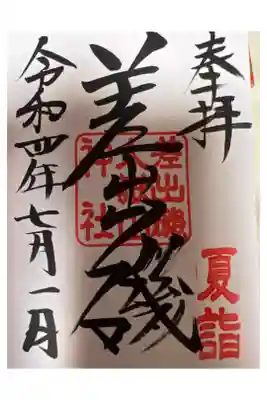 奉拝
夏詣
差出磯
差出磯
大嶽山
神社
令和四年七月一日